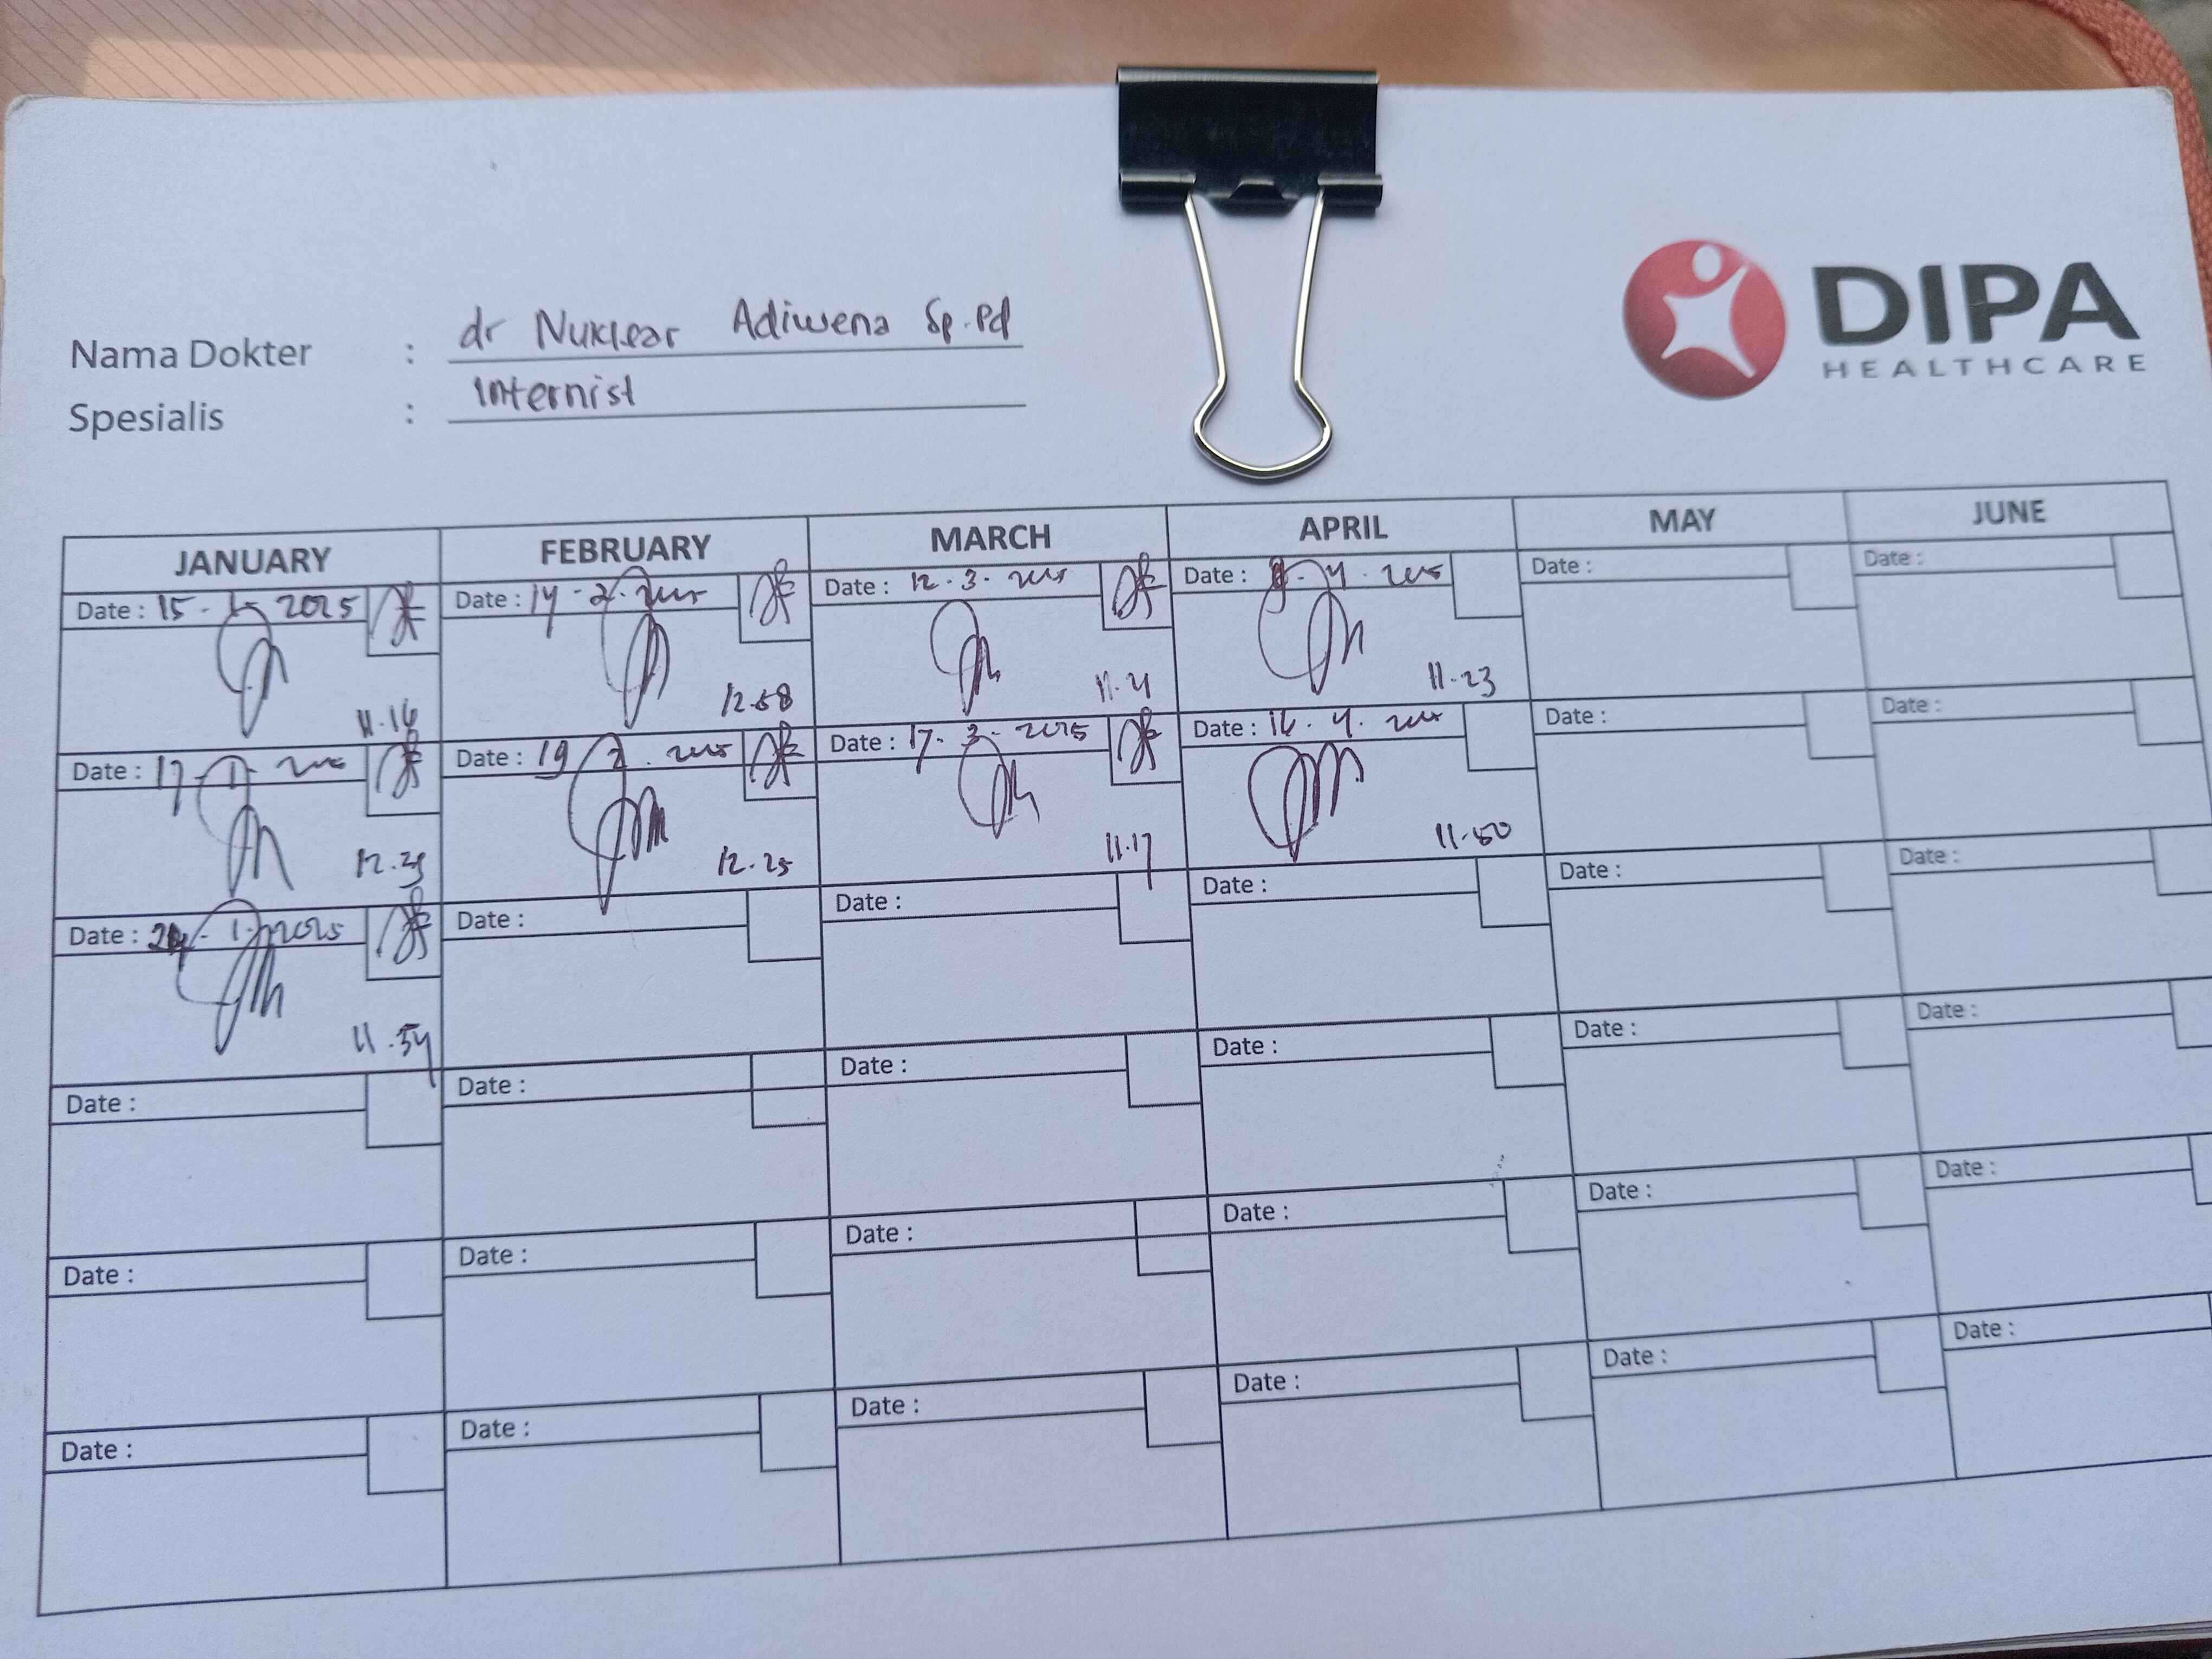 DIPA
HEALTHCARE
Nama Dokter : dr Nuklear Adiwena Sp.Pd
Spesialis : Internist
JANUARY FEBRUARY MARCH APRIL MAY JUNE
Date : 15 - 1 - 2025 Date : 14 - 2 - 2025 Date : 12 . 3 . 2025 Date : 4 . 2025 Date : Date :
11.16 12.58 11.21 11.23
Date : 17 - 1 - 2025 Date : 19 2 . 2025 Date : 17 . 3 . 2025 Date : 16 . 4 . 2025 Date : Date :
12.25 11.17 11.50
Date : 24 - 1 - 2025 Date : Date : Date : Date : Date :
11.54
Date : Date : Date : Date : Date : Date :
Date : Date : Date : Date : Date : Date :
Date : Date : Date : Date : Date : Date :